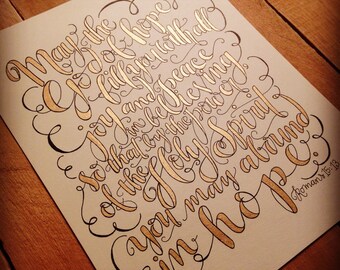 May the
God of hope
fill you with all
joy and peace
in believing
so that by the power
of the Holy Spirit
you may abound
in hope.
Romans 15:13